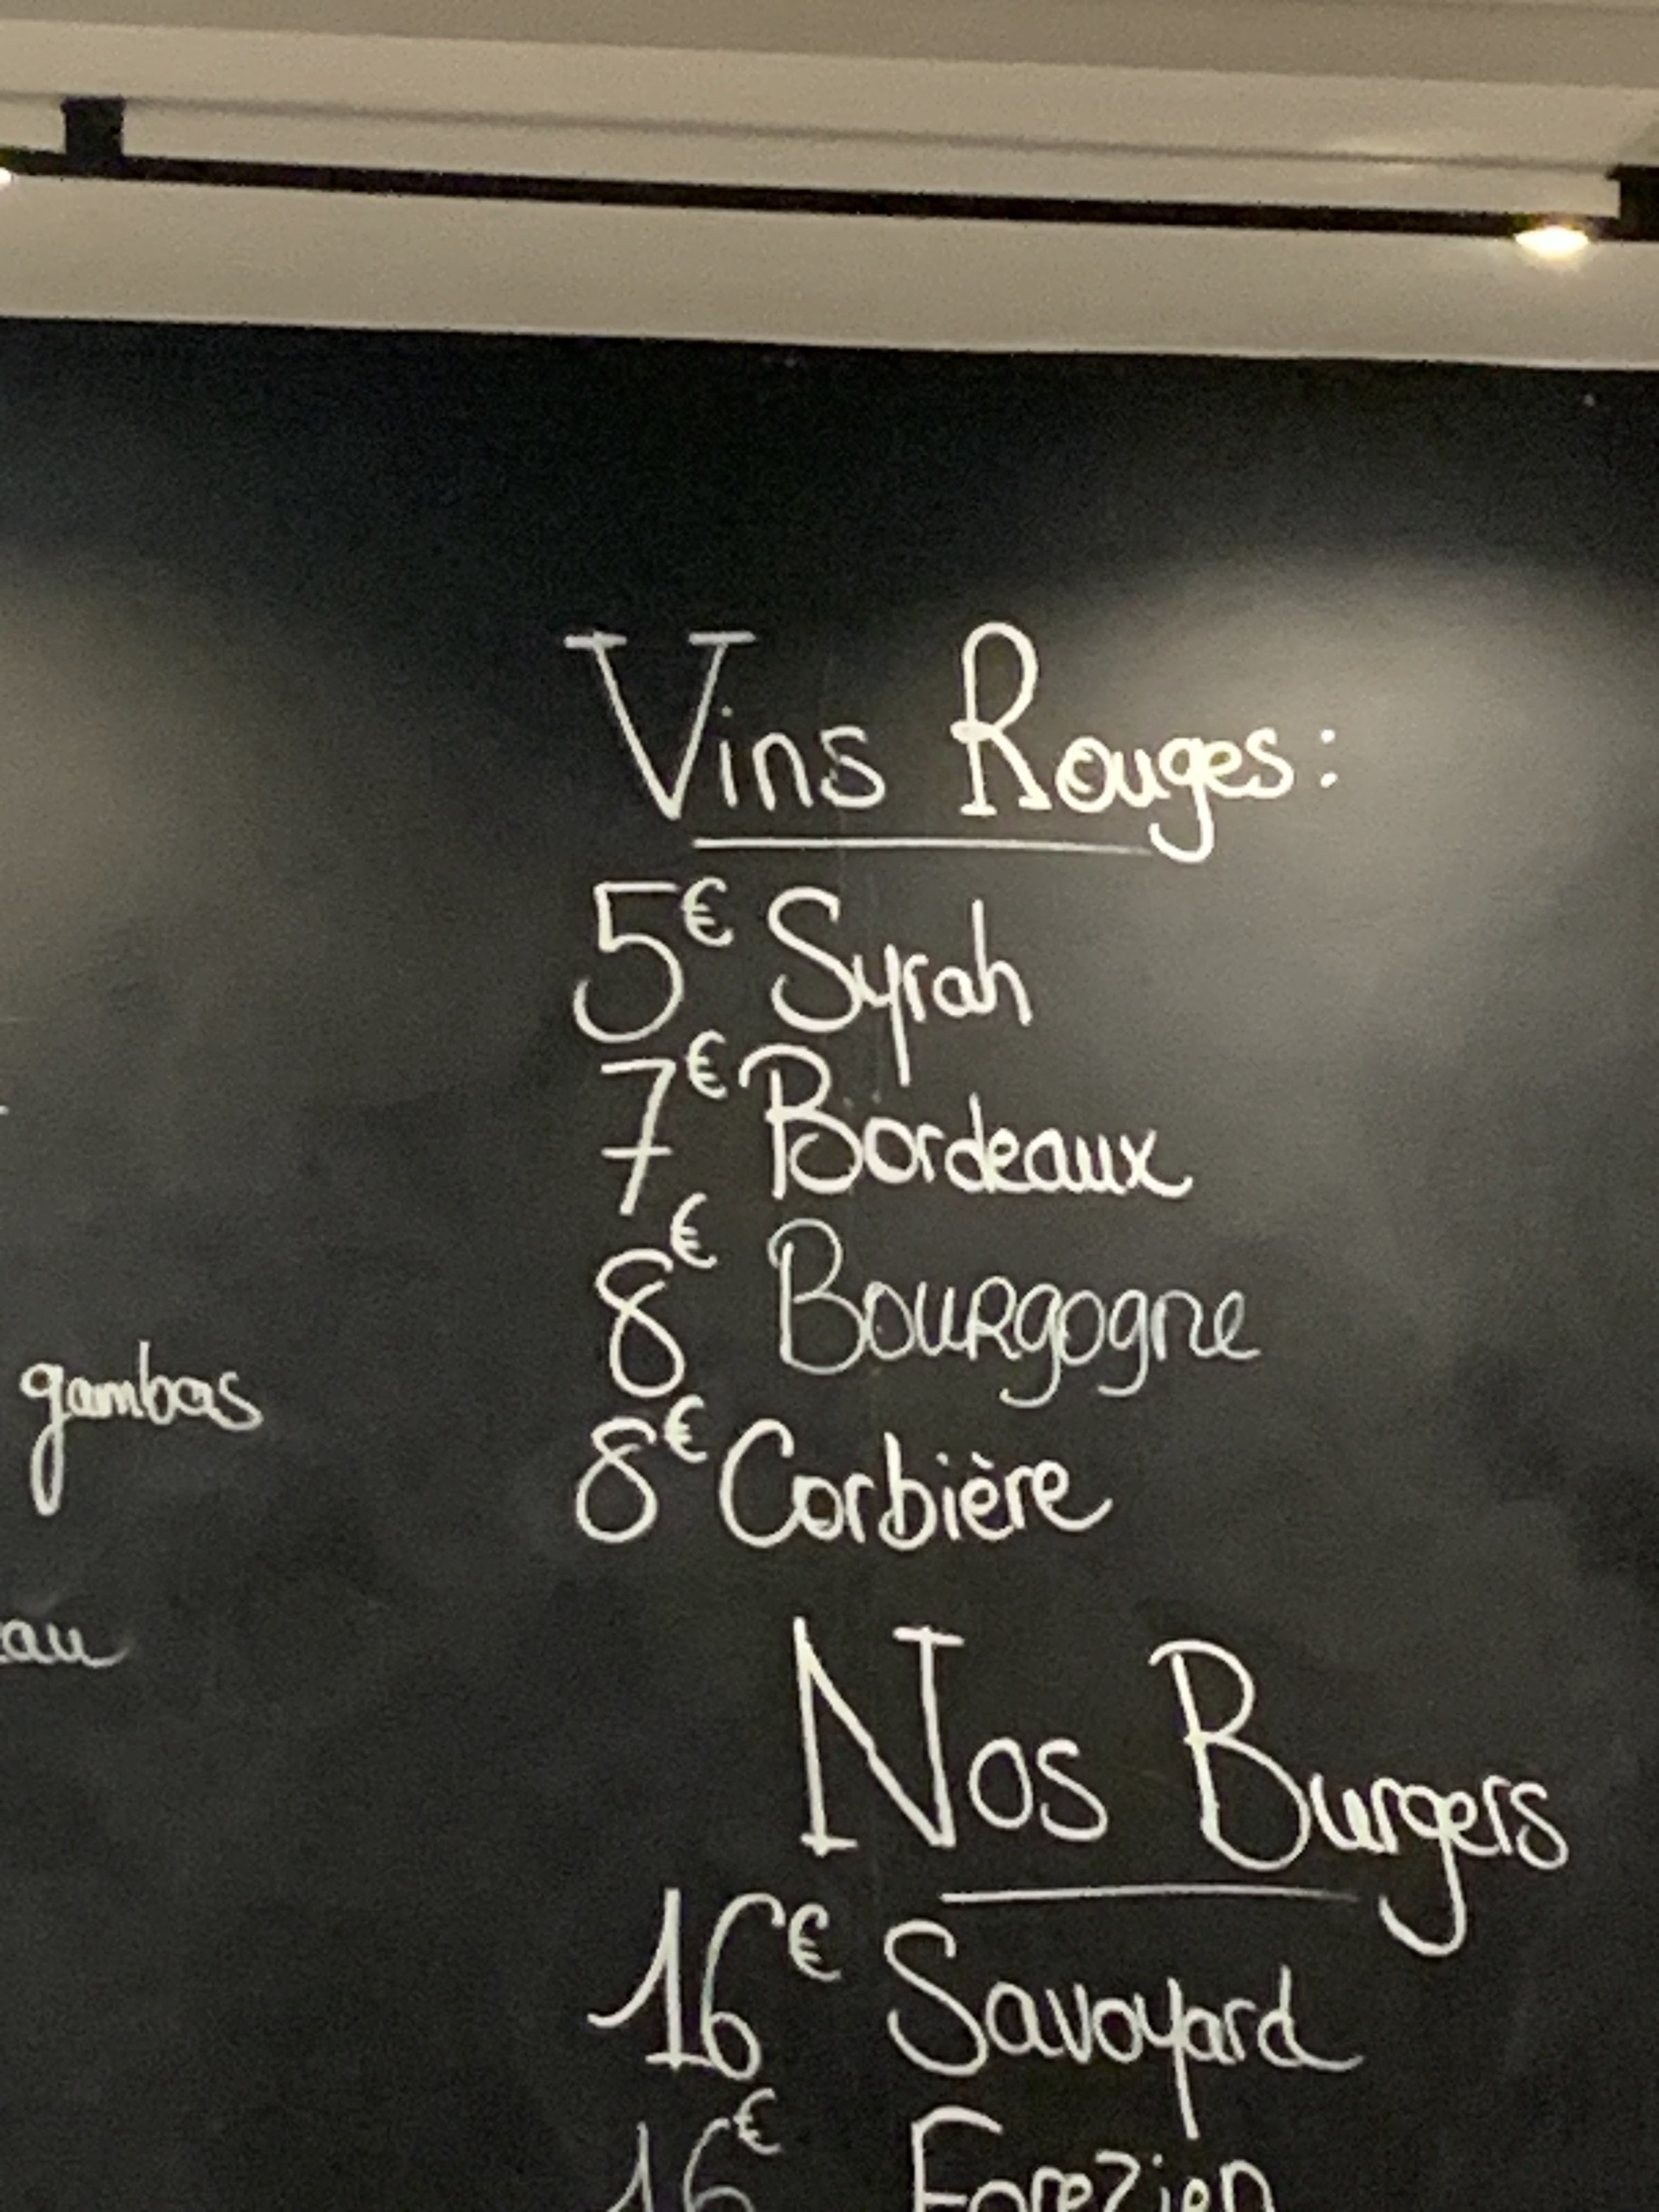 Vins Rouges:
5€ Syrah
7€ Bordeaux
8€ Bourgogne
8€ Corbière
gambas
Nos Burgers
16€ Savoyard
16€ Forezien